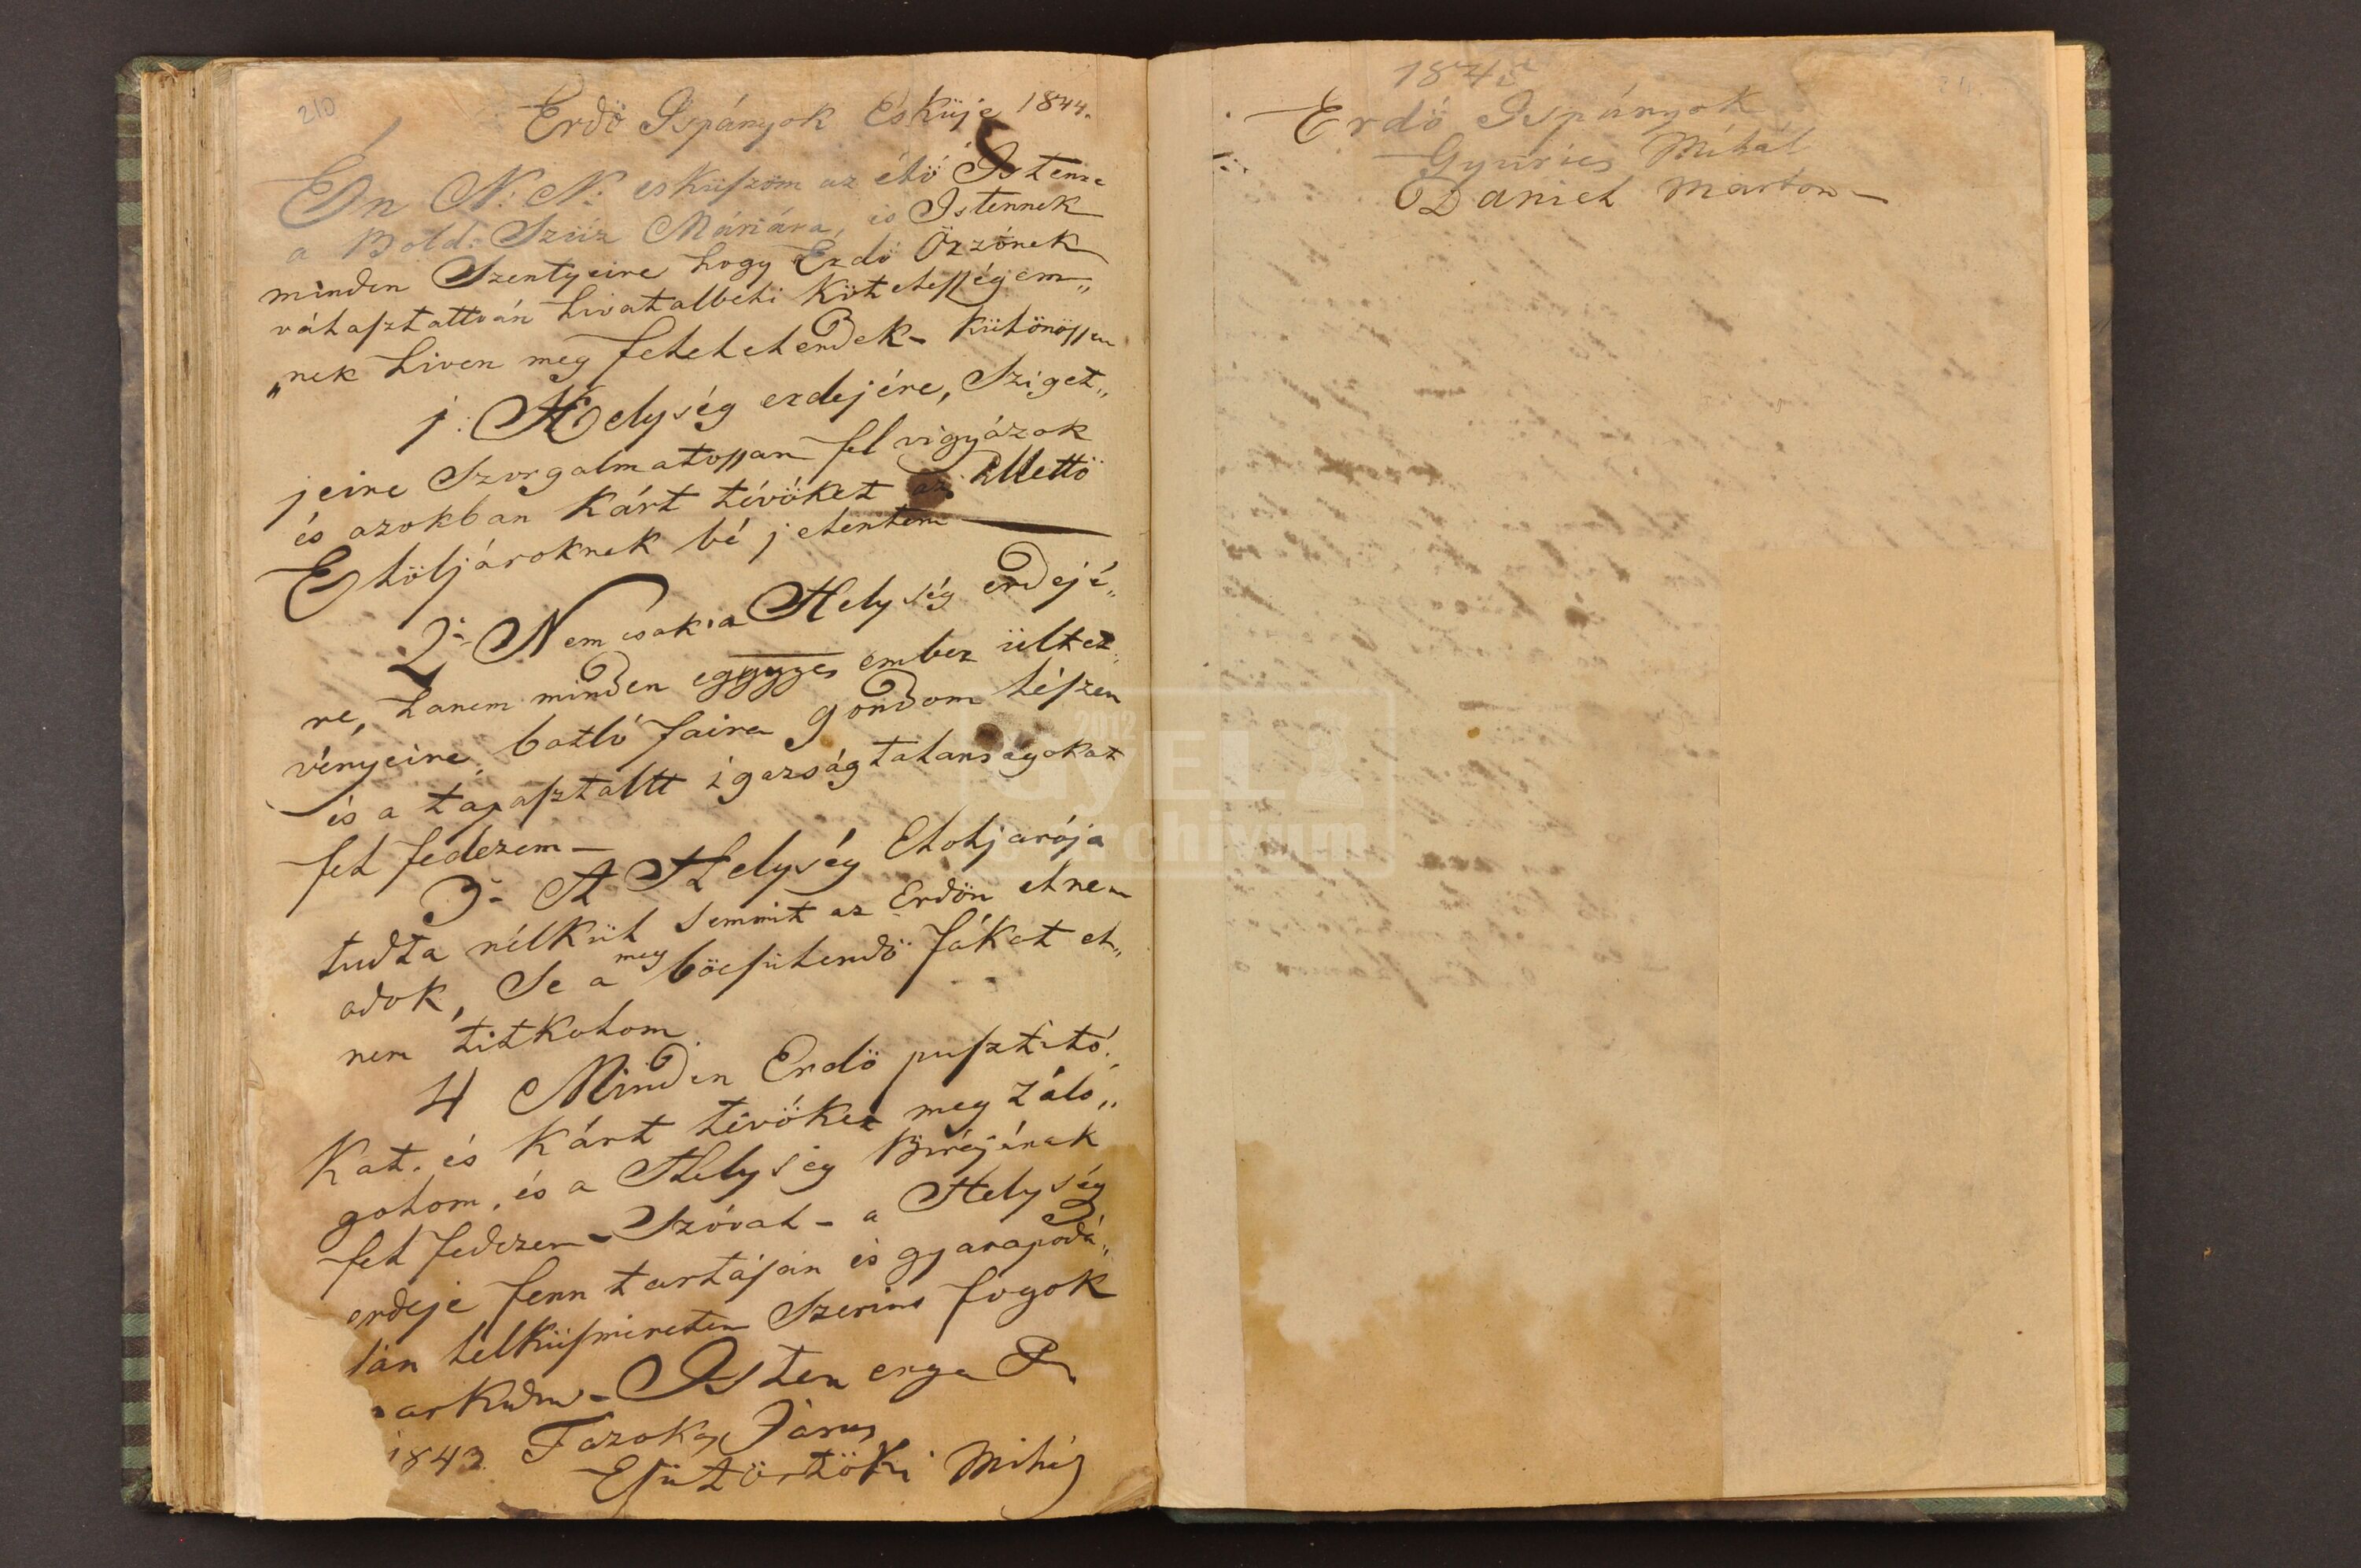 210
Erdö Ispányok Esküje 1844.
Én N: N: esküszöm az élö Istenre
a Bold: Szüz Máriára, és Istennek
minden Szentyeire hogy Erdö Örzönek
választattván hivatalbeli kötelességem„
„nek hiven meg felelelendek – külónössen
1: Helység erdejére, Sziget„
jeire Szorgalmatossan fel vigyázok
és azokban kárt tévöket az illettö
Elöljároknak bé jelentem
2: Nem csak a Helység erdejé„
re, hanem minden eggygyes ember ültet„
vényeire, bozló faira gondom lészen
és a tapasztaltt igazságtalanságokat
fel fedezem –
3: A Helység Eloljarója
tudta nélkül semmit az Erdön el nem
adok, Se a meg böcsülendö fákat el„
nem titkolom.
4 Minden Erdö pusztitó„
kat. és kárt tévöket meg záló„
golom, és a Helység Birájának
fel fedezem – Szóval – a Helység
erdeje fenn tartásán és gyarapodá„
sán lelküsmeretem Szerint fogok
Isten
1843. Fazokas János
Csütörtöki Mihá
2012
GyEL
Archivum
184
Erdö Ispányok
Gyurics Mihál
Daniel Marton –